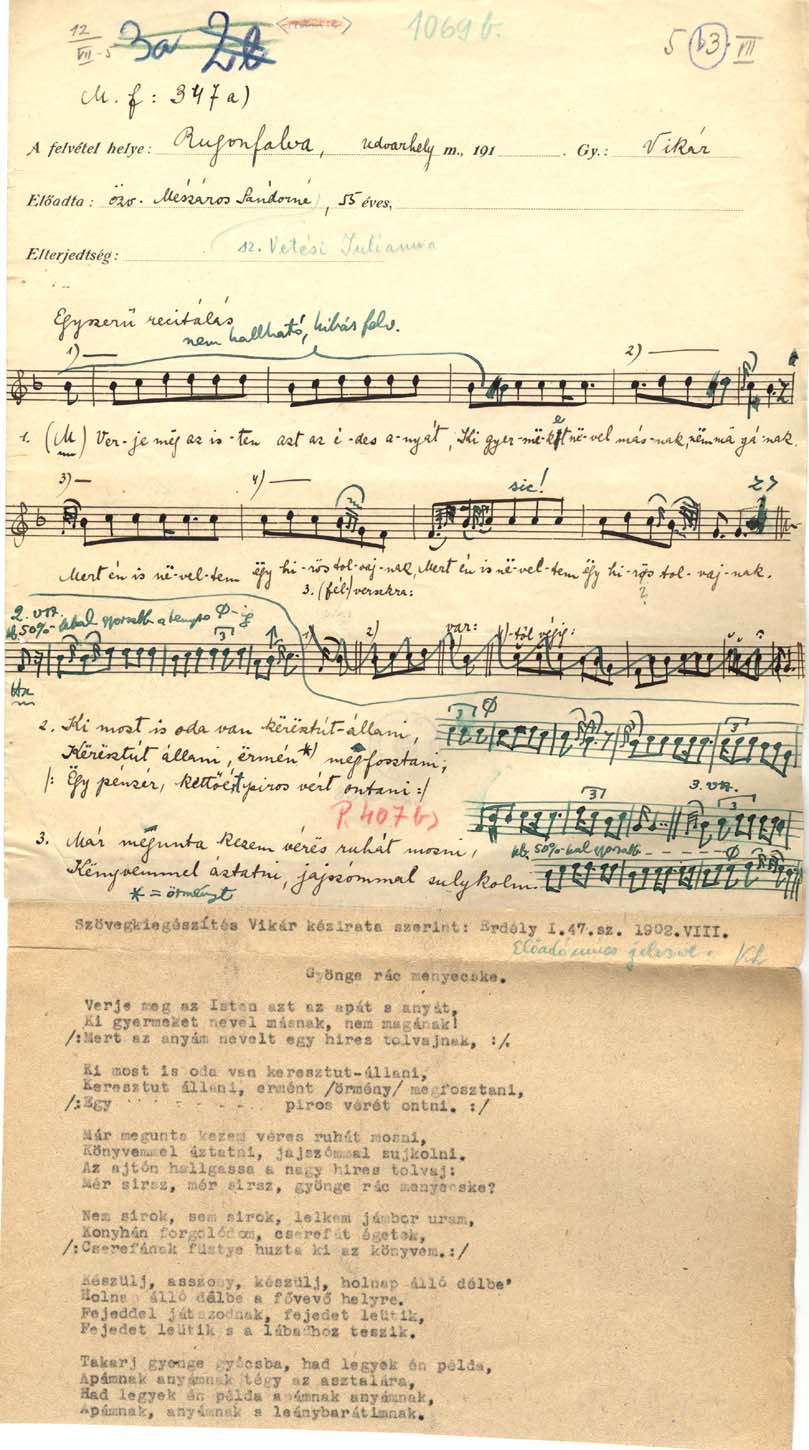 12
VII-5
3a 2b
1069 b.
5 b3. VII
M. f: 347 a)
A felvétel helye: Rugonfalva, Udvarhely m., 191 . Gy.: Vikár
Előadta: özv. Mészáros Sándorné, 55 éves,
sz. Vetési Julianna
Elterjedtség:
Egyszerű recitálás
nem hallható, hibás felv.
1) 2)
1. (M) Ver-je még az is-ten azt az é-des a-nyát, Ki gyer-më-két në-vel más-nak, nëm ma gá-nak.
3) 4) sic!
Mert én is në-vel-tem ëgy hi-rös tol-vaj-nak, Mert én is në-vel-tem ëgy hi-rös tol-vaj-nak.
3. (fél)versekra: ?
2. vsz. 2) var: -től végig:
kb. 50%-kal gyorsabb a tempo Ø-ig
2. Ki most is oda van kërësztút-állani,
Kërësztút állani, ërmén*) mëgfosztani,
/: Ëgy penzér, kettőért piros vért ontani :/
P. 407 b)
3. vsz.
3. Már mëgunta kezem vérës ruhát mosni,
kb. 50%-kal gyorsabb Ø
Kënyvemmel áztatni, jajszómmal sulykolni.
* = örményt
Szövegkiegészités Vikár kézirata szerint: Erdély I.47.sz. 1902.VIII.
Előadó nincs jelezve.
Gyönge rác menyecske.
Verje meg az Isten azt az apát s anyát,
Ki gyermeket nevel másnak, nem magának!
/:Mert az anyám nevelt egy hires tolvajnak, :/.
Ki most is oda van keresztut-állani,
Keresztut állani, ermént /örmény/ megfosztani,
/:Egy . . . . . . . . piros vérét ontni. :/
Már megunta kezem véres ruhát mosni,
Könyvemmel áztatni, jajszómmal sujkolni.
Az ajtón hallgassa a nagy hires tolvaj:
Mér sirsz, mér sirsz, gyönge rác menyecske?
Nem sirok, sem sirok, lelkem jámbor uram,
Konyhán forgolódom, cserefát égetek,
/:Cserefának füstye huzta ki az könyvem.:/
Készülj, asszony, készülj, holnap álló délbe'
Holnap álló délbe a fővevő helyre.
Fejeddel játszodnak, fejedet leütik,
Fejedet leütik s a lábadhoz teszik.
Takarj gyenge gyócsba, had legyek én példa,
Apámnak anyámnak tégy az asztalára,
Had legyek én példa apámnak anyámnak,
Apámnak, anyámnak s leánybarátimnak.